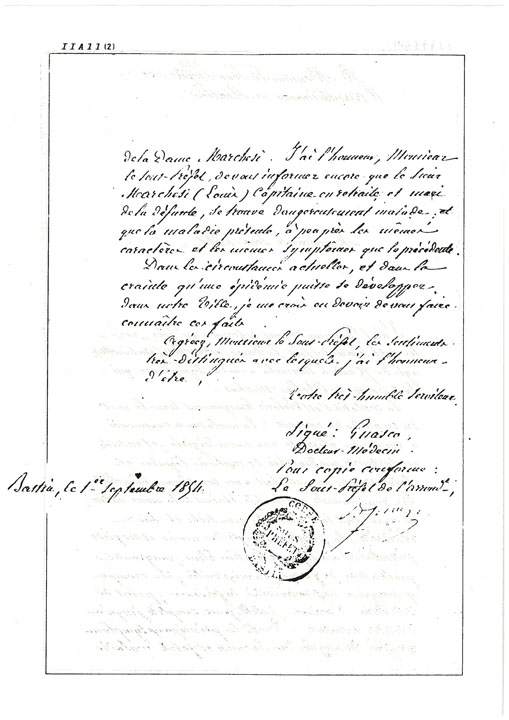 IIA11(2)
de la Dame Marchesi. J'ai l'honneur, Monsieur
le Sous-Préfet, de vous informer encore que le Sieur
Marchesi (Louis) Capitaine en retraite et mari
de la défunte, se trouve dangereusement malade, et
que la maladie présente, à peu près les mêmes
caractères et les mêmes symptômes que la précédente.
Dans les circonstances actuelles, et dans la
crainte qu'une épidémie puisse se développer
dans notre Ville, je me crois en devoir de vous faire
connaître ces faits
Agréez, Monsieur le Sous-Préfet, les Sentiments
très-distingués avec lesquels j'ai l'honneur
d'être,
Votre très-humble Serviteur.
Signé: Guasco,
Docteur-Médecin.
Pour copie conforme:
Bastia, le 1er Septembre 1854.
Le Sous-Préfet de l'arrondt,
CORSE
SOUS
PREFET
BASTIA